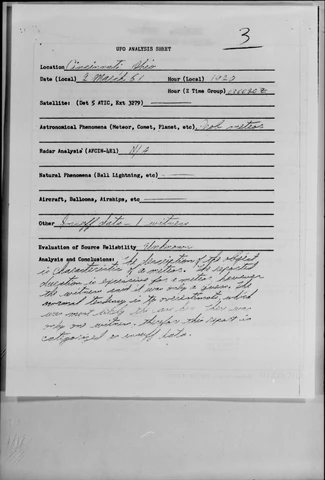 3
UFO ANALYSIS SHEET
Location Cincinnati Ohio
Date (Local) 2 March 61 Hour (Local) 1920
Hour (Z Time Group)
Satellite: (Det 5 ATIC, Ext 3279)
Astronomical Phenomena (Meteor, Comet, Planet, etc) meteor
Radar Analysis (AFCIN-4E1) N/A
Natural Phenomena (Ball Lightning, etc)
Aircraft, Balloons, Airships, etc
Other Insuff data - 1 witness
Evaluation of Source Reliability Unknown
Analysis and Conclusions: The description of the object
is characteristic of a meteor. The reported
duration is excessive for a meteor however
the witness said it was only a guess. The
normal tendency is to overestimate, which
was most likely the case here. There was
only one witness. therefore this report is
categorized as insuff data.